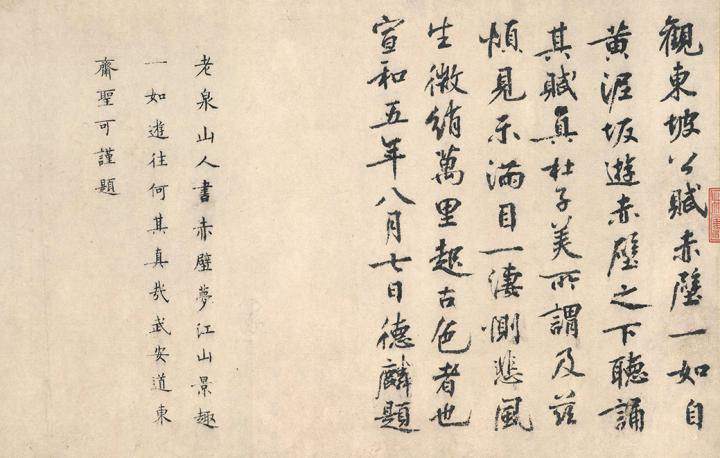 觀東坡公賦赤壁一如自
黃泥坂遊赤壁之下聽誦
其賦真杜子美所謂及茲
煩見示滿目一淒惻悲風
生微綃萬里起古色者也
宣和五年八月七日德麟題
老泉山人書赤壁夢江山景趣
一如遊往何其真哉武安道東
齋聖可謹題